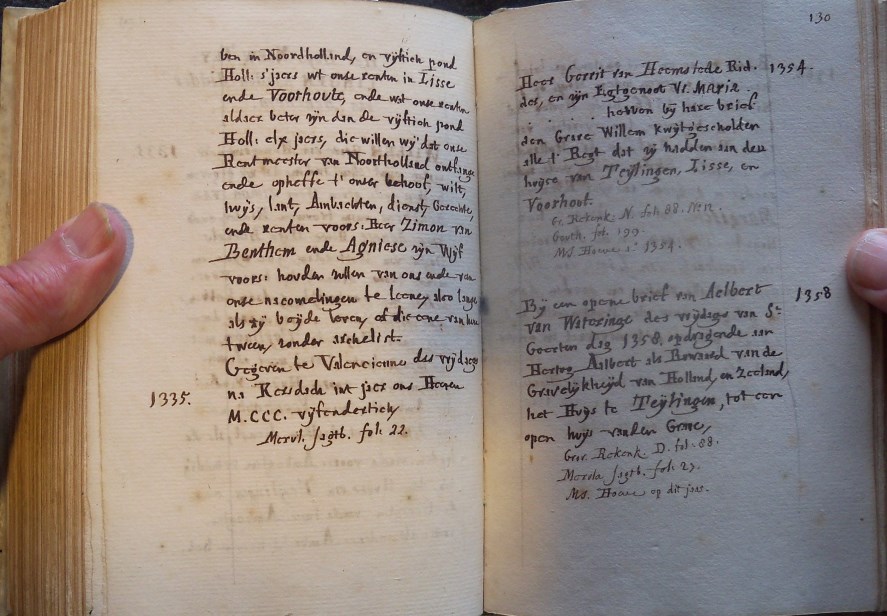 ben in Noordholland, en vijftich pond
Holl: s'jaers wt onse renten in Lisse
ende Voorhoute, ende wat onse renten
aldaer beter zijn dan de vijftich pond
Holl: elx jaers, die willen wij dat onse
Rentmeester van Noortholland onthange
ende opheffe t'onser behoef, wilt,
huijs, lant, Ambachten, dienst, Gerechte,
ende renten voors: Heer Zimon van
Benthem ende Agniese zijn Wijf
voors: houden zullen van ons ende van
onse nacomelingen te Leene, also lange
als zij beijde leven, of die eene van hun
tween, zonder archelist.
Gegeven te Valencienne des vrijdages
na Kersdach int jaer ons Heeren
1335.
M.CCC. vijfendertich
Merul. Jagtb. fol: 22.
130
Heer Gerrit van Heemstede Rid- 1354.
der, en zijn Egtgenoot Vr. Maria
. . . . . hebben bij hare brief
den Grave Willem kwijtgescholden
alle 't Regt dat zij hadden aan den
huijse van Teijlingen, Lisse, en
Voorhout.
Gr. Rekenk. N. fol: 88.
Gouth. fol. 199.
MS. Houwe a: 1354.
Bij een opene brief van Aelbert 1358
van Wateringe des vrijdags van St.
Geerten dag 1358. opdragende aan
Hertog Aalbert als Rewaerd van de
Gravelijkheijd van Holland, en Zeeland,
het Huijs te Teijlingen, tot een
open huijs vanden Grave,
Grav. Rekenk. D. fol: 88.
Merula Jagtb. fol: 27.
MS. Houwe op dit jaar.